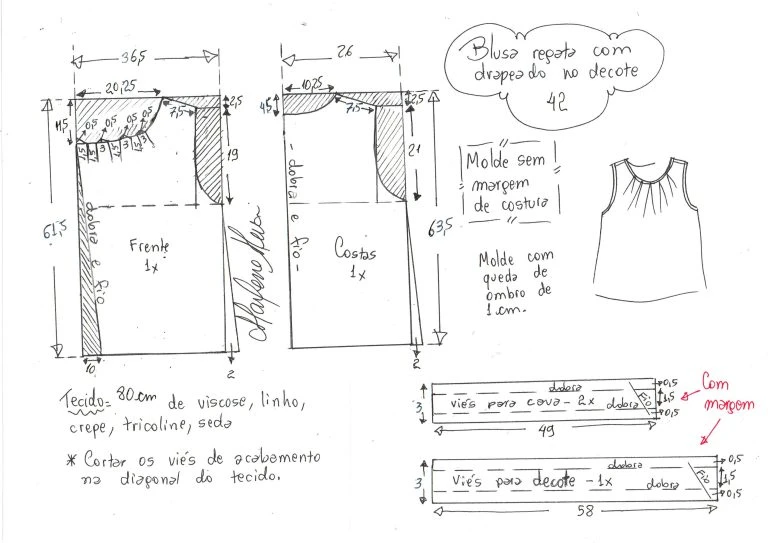 Blusa regata com
drapeado no decote
42
36,5
26
20,25
10,25
2,5
2,5
11,5
0,5
0,5
0,5
0,5
7,5
4,5
7,5
1,5
3
1,5
3
1,5
3
1,5
19
21
61,5
63,5
dobra e fio
- dobra e fio -
Frente
1x
Costas
1x
Molde sem
margem
de costura
Molde com
queda de
ombro de
1cm.
10
2
2
Tecido= 80cm de viscose, linho,
crepe, tricoline, seda
* Cortar os viés de acabamento
na diagonal do tecido.
dobra
3
viés para cava - 2x
dobra
Fio
0,5
1,5
0,5
49
Com
margem
dobra
3
Viés para decote - 1x
dobra
Fio
0,5
1,5
0,5
58